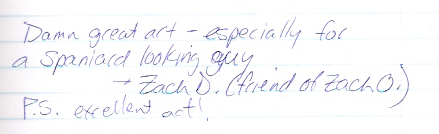 Damn great art - especially for
a spaniard looking guy
→ Zach D. (friend of Zach O.)
P.S. excellent art!